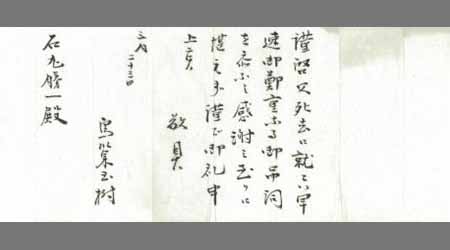 謹啓父死去に就ては早
速御鄭重なる御弔詞
を忝ふし感謝之至りに
堪えず謹で御礼申
上候
敬具
三月二十三日
玉樹
石丸勝一殿